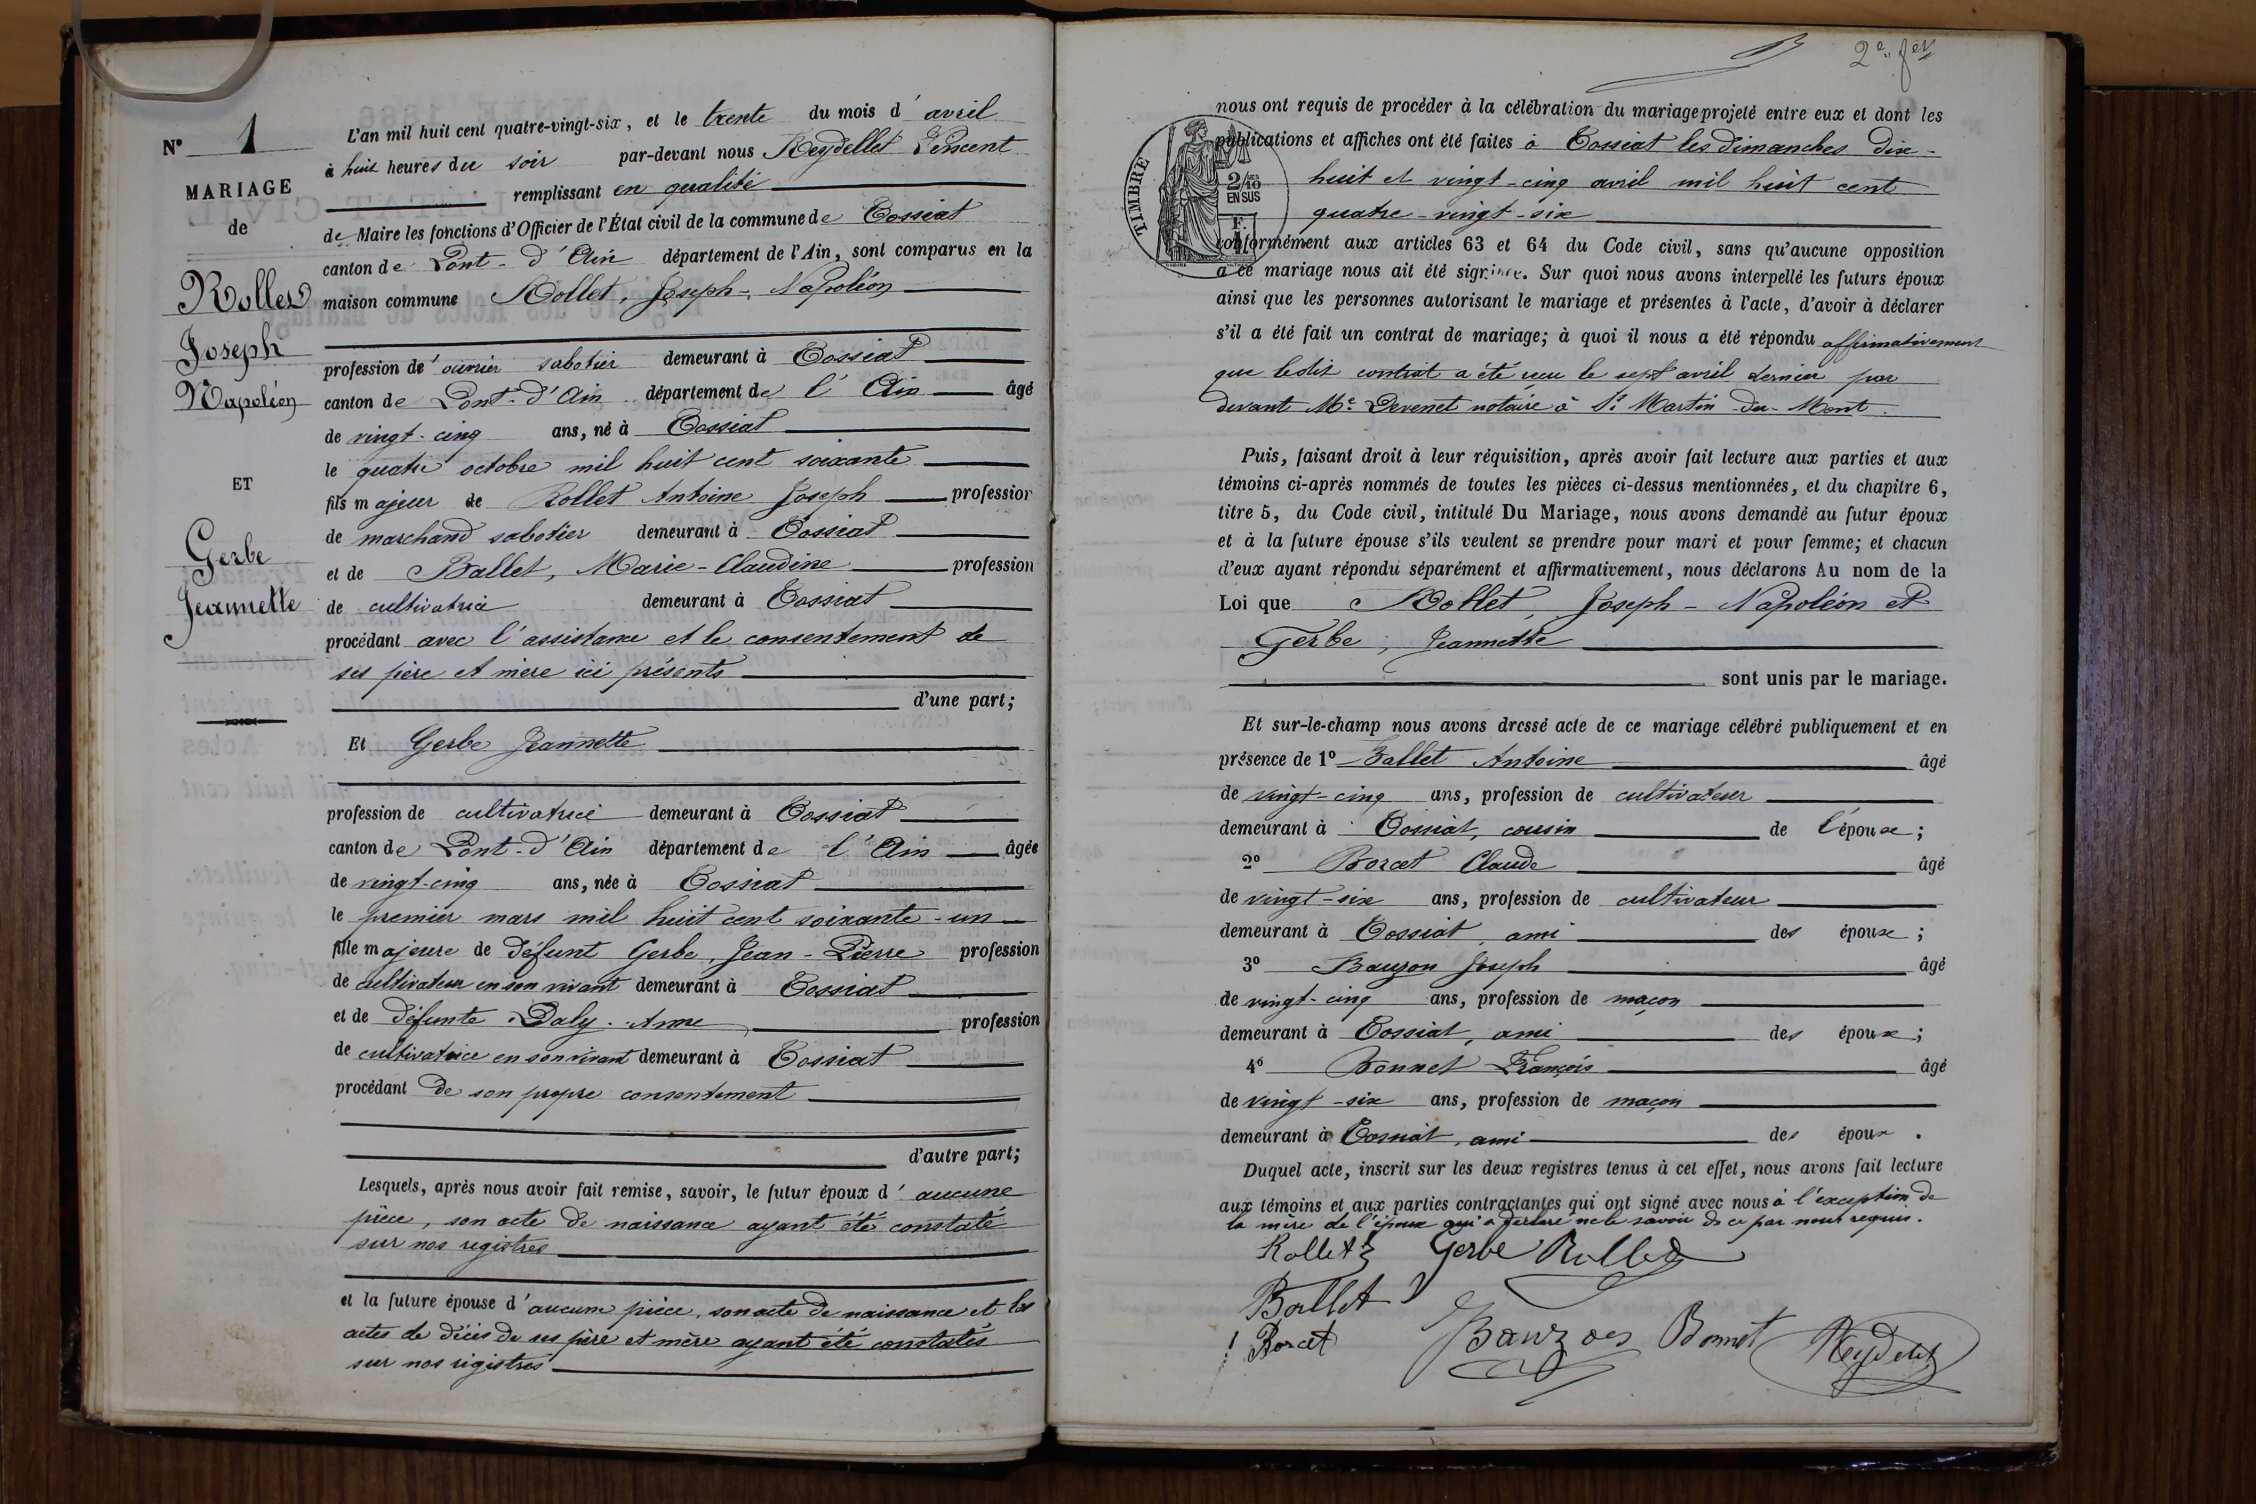 Nº 1
MARIAGE
de
Rollet
Joseph
Napoléon
ET
Gerbe
Jeannette
L'an mil huit cent quatre-vingt-six, et le trente du mois d'avril
à huit heures du soir par-devant nous Reydellet Vincent
remplissant en qualité
de Maire les fonctions d'Officier de l'État civil de la commune de Tossiat
canton de Pont-d'Ain département de l'Ain, sont comparus en la
maison commune Rollet, Joseph-Napoléon
profession d'ouvrier sabotier demeurant à Tossiat
canton de Pont-d'Ain département de l'Ain âgé
de vingt-cinq ans, né à Tossiat
le quatre octobre mil huit cent soixante
fils majeur de Rollet Antoine Joseph profession
de marchand sabotier demeurant à Tossiat
et de Ballet, Marie-Claudine profession
de cultivatrice demeurant à Tossiat
procédant avec l'assistance et le consentement de
ses père et mère ici présents
d'une part;
Et Gerbe Jeannette
profession de cultivatrice demeurant à Tossiat
canton de Pont-d'Ain département de l'Ain âgée
de vingt-cinq ans, née à Tossiat
le premier mars mil huit cent soixante-un
fille majeure de défunt Gerbe, Jean-Pierre profession
de cultivateur en son vivant demeurant à Tossiat
et de défunte Daly Anne profession
de cultivatrice en son vivant demeurant à Tossiat
procédant de son propre consentement
d'autre part;
Lesquels, après nous avoir fait remise, savoir, le futur époux d'aucune
pièce, son acte de naissance ayant été constaté
sur nos registres
et la future épouse d'aucune pièce, son acte de naissance et les
actes de décès de ses père et mère ayant été constatés
sur nos registres
2e
TIMBRE
2/10
EN SUS
F.
nous ont requis de procéder à la célébration du mariage projeté entre eux et dont les
publications et affiches ont été faites à Tossiat les dimanches dix-
huit et vingt-cinq avril mil huit cent
quatre-vingt-six
conformément aux articles 63 et 64 du Code civil, sans qu'aucune opposition
à ce mariage nous ait été signifiée. Sur quoi nous avons interpellé les futurs époux
ainsi que les personnes autorisant le mariage et présentes à l'acte, d'avoir à déclarer
s'il a été fait un contrat de mariage; à quoi il nous a été répondu affirmativement
que ledit contrat a été reçu le sept avril dernier par
devant Me Devenet notaire à St Martin-du-Mont.
Puis, faisant droit à leur réquisition, après avoir fait lecture aux parties et aux
témoins ci-après nommés de toutes les pièces ci-dessus mentionnées, et du chapitre 6,
titre 5, du Code civil, intitulé Du Mariage, nous avons demandé au futur époux
et à la future épouse s'ils veulent se prendre pour mari et pour femme; et chacun
d'eux ayant répondu séparément et affirmativement, nous déclarons Au nom de la
Loi que Rollet, Joseph-Napoléon et
Gerbe, Jeannette
sont unis par le mariage.
Et sur-le-champ nous avons dressé acte de ce mariage célébré publiquement et en
présence de 1º Ballet Antoine âgé
de vingt-cinq ans, profession de cultivateur
demeurant à Tossiat, cousin de l'épouse;
2º Borcet Claude âgé
de vingt-six ans, profession de cultivateur
demeurant à Tossiat, ami des époux;
3º Bauzon Joseph âgé
de vingt-cinq ans, profession de maçon
demeurant à Tossiat, ami des époux;
4º Bonnet François âgé
de vingt-six ans, profession de maçon
demeurant à Tossiat, ami des époux.
Duquel acte, inscrit sur les deux registres tenus à cet effet, nous avons fait lecture
aux témoins et aux parties contractantes qui ont signé avec nous à l'exception de
la mère de l'époux qui a déclaré ne le savoir de ce par nous requis.
Rollet Gerbe Rollet
Ballet
Borcet Bauzon Bonnet Reydellet